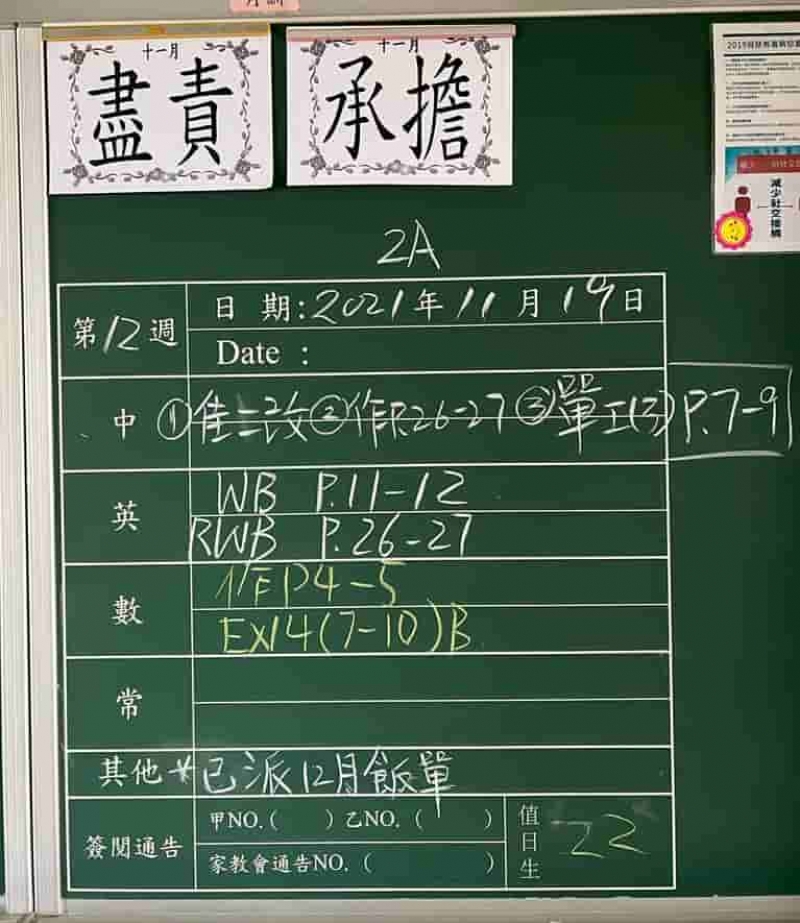 十一月
盡責
十一月
承擔
減少社交接觸
2A
第12週
日 期:2021年11月19日
Date :
中 ①隹二改②作P.26-27③單工(3)P.7-9
英
WB P.11-12
RWB P.26-27
數
作P4-5
EX14(7-10)B
常
其他 *已派12月飯單
簽閱通告
甲NO.( ) 乙NO. ( )
家教會通告NO. ( )
值日生 22